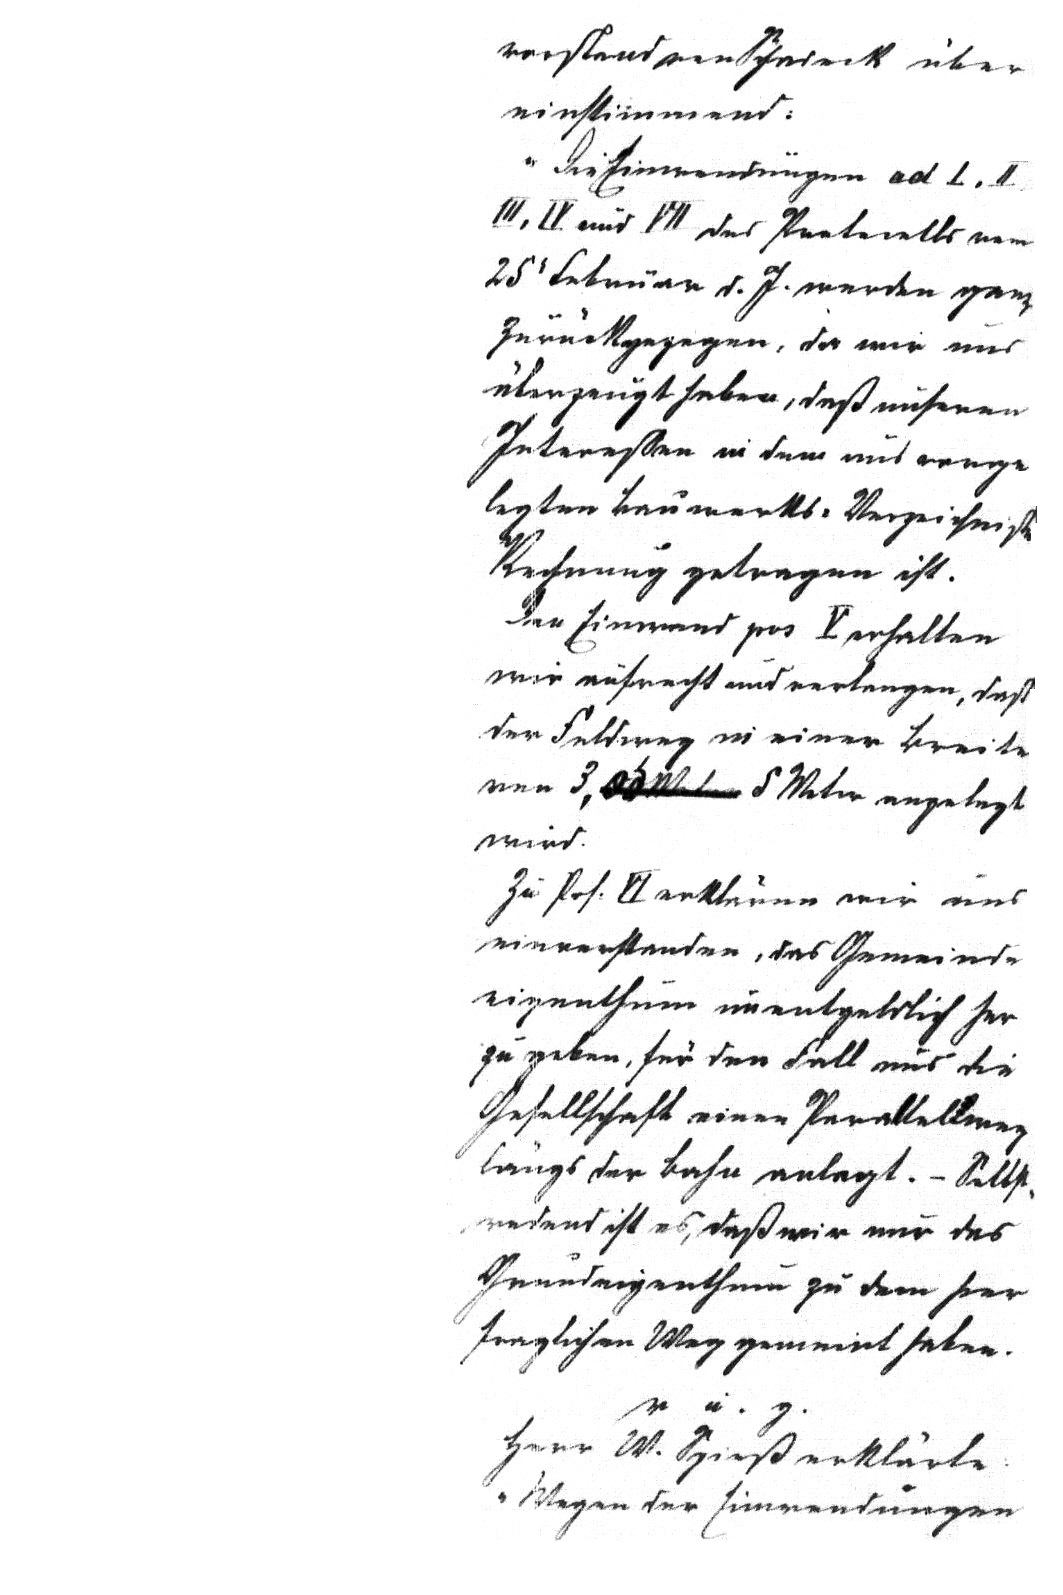 vorstand von Schadeck über
einstimmend:
" Die Einwendungen ad I, II
III, IV und VII des Protocolls vom
25t Februar d. J. werden ganz
zurückgezogen, da wir uns
überzeugt haben, daß unseren
Interessen in dem uns vorge
legten Bauwerks-Verzeichnisse
Rechnung getragen ist.
Den Einwand pos V erhalten
wir aufrecht und verlangen, daß
der Feldweg in einer Breite
von 3, 5 Meter angelegt
wird.
Zu Pos. VI erklären wir uns
einverstanden, das Gemeinde
eigenthum unentgeldlich her
zu geben, für den Fall uns die
Gesellschaft einen Parallelweg
längs der Bahn anlegt. – Selbst-
redend ist es, daß wir nur das
Grundeigenthum zu dem hier
fraglichen Weg gemeint haben.
v. u. g.
Herr W. Spieß erklärte:
" Wegen der Einwendungen